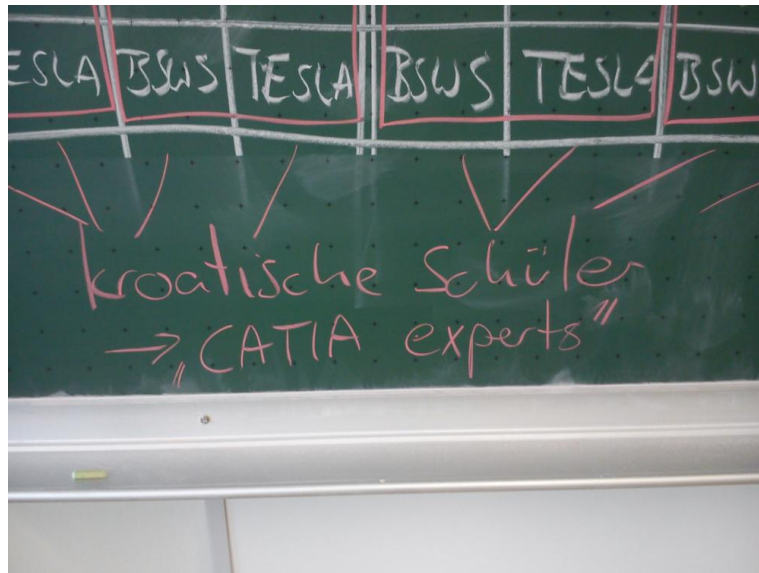 ESLA BSWS TESLA BSWS TESLA BSW
kroatische Schüler
→ „CATIA experts"